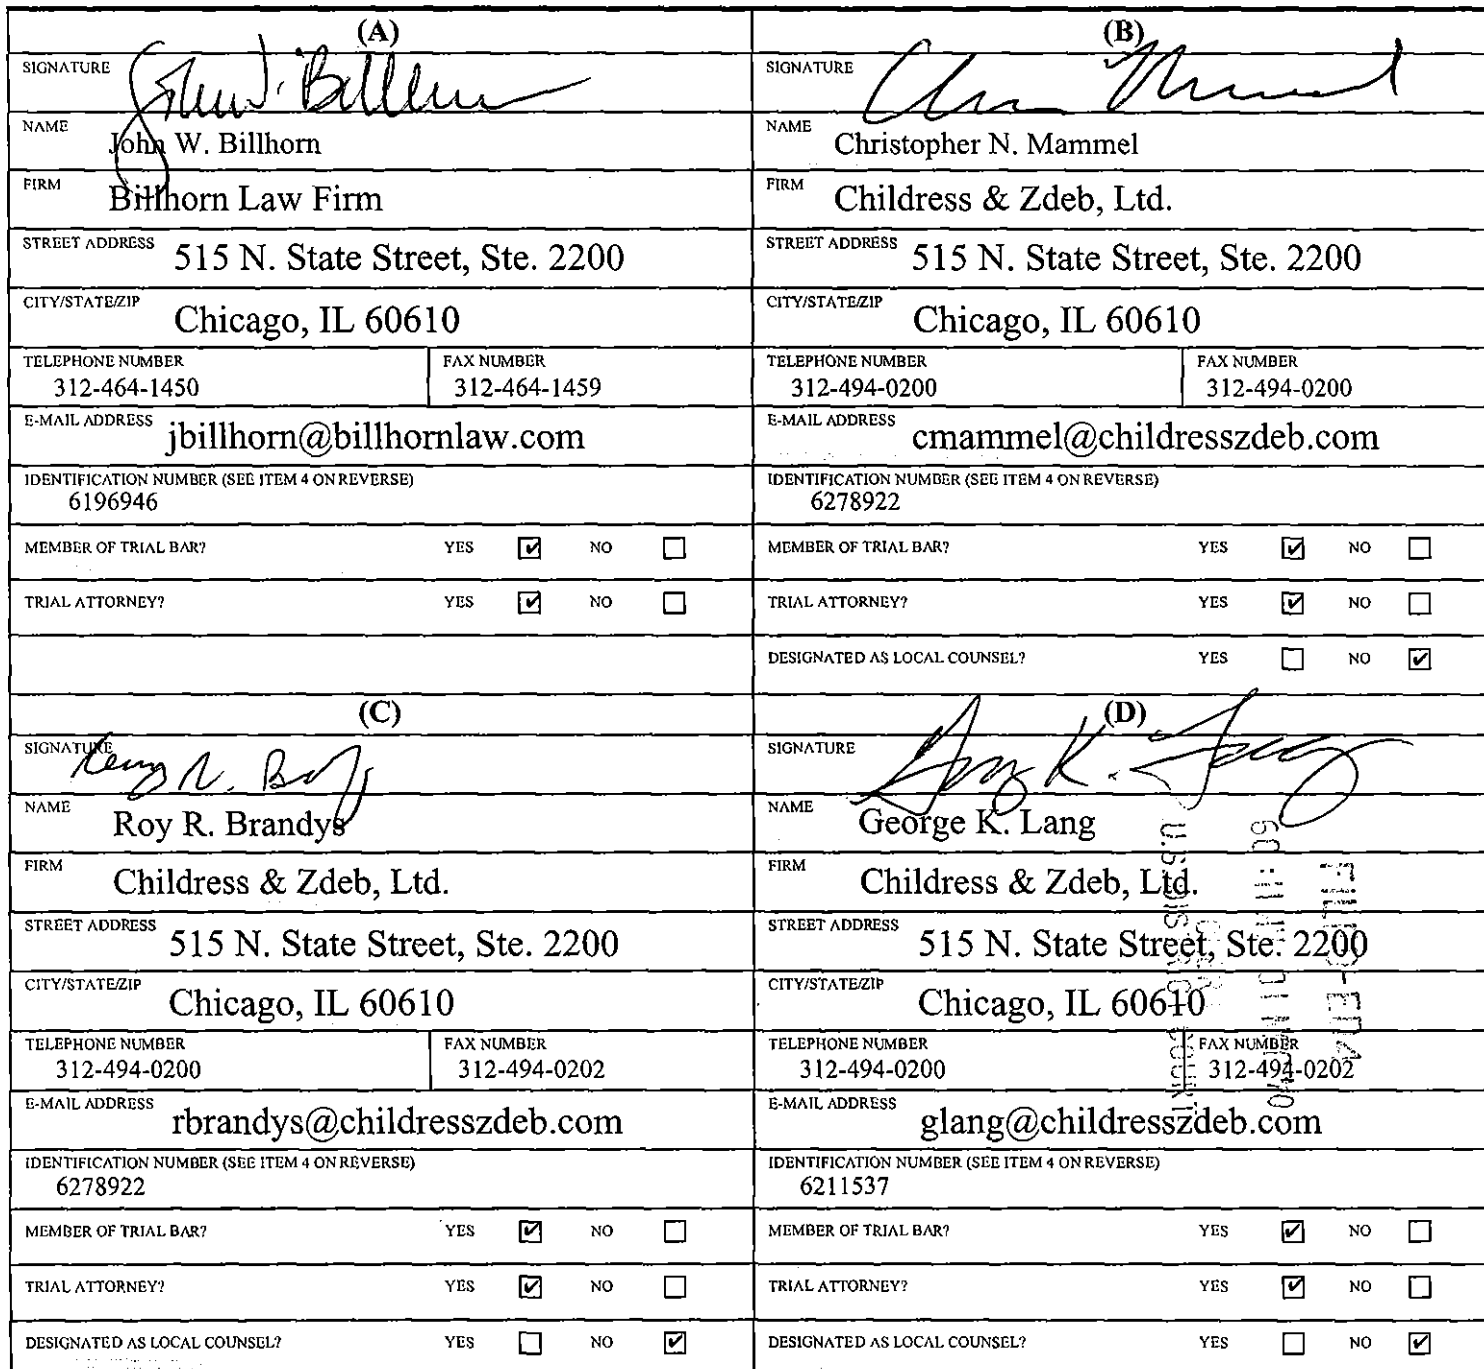 (A)
SIGNATURE John W. Billhorn
NAME John W. Billhorn
FIRM Billhorn Law Firm
STREET ADDRESS 515 N. State Street, Ste. 2200
CITY/STATE/ZIP Chicago, IL 60610
TELEPHONE NUMBER FAX NUMBER
312-464-1450 312-464-1459
E-MAIL ADDRESS jbillhorn@billhornlaw.com
IDENTIFICATION NUMBER (SEE ITEM 4 ON REVERSE)
6196946
MEMBER OF TRIAL BAR? YES ☑ NO ☐
TRIAL ATTORNEY? YES ☑ NO ☐
(B)
SIGNATURE
NAME Christopher N. Mammel
FIRM Childress & Zdeb, Ltd.
STREET ADDRESS 515 N. State Street, Ste. 2200
CITY/STATE/ZIP Chicago, IL 60610
TELEPHONE NUMBER FAX NUMBER
312-494-0200 312-494-0200
E-MAIL ADDRESS cmammel@childresszdeb.com
IDENTIFICATION NUMBER (SEE ITEM 4 ON REVERSE)
6278922
MEMBER OF TRIAL BAR? YES ☑ NO ☐
TRIAL ATTORNEY? YES ☑ NO ☐
DESIGNATED AS LOCAL COUNSEL? YES ☐ NO ☑
(C)
SIGNATURE
NAME Roy R. Brandys
FIRM Childress & Zdeb, Ltd.
STREET ADDRESS 515 N. State Street, Ste. 2200
CITY/STATE/ZIP Chicago, IL 60610
TELEPHONE NUMBER FAX NUMBER
312-494-0200 312-494-0202
E-MAIL ADDRESS rbrandys@childresszdeb.com
IDENTIFICATION NUMBER (SEE ITEM 4 ON REVERSE)
6278922
MEMBER OF TRIAL BAR? YES ☑ NO ☐
TRIAL ATTORNEY? YES ☑ NO ☐
DESIGNATED AS LOCAL COUNSEL? YES ☐ NO ☑
(D)
SIGNATURE George K. Lang
NAME George K. Lang
FIRM Childress & Zdeb, Ltd.
STREET ADDRESS 515 N. State Street, Ste. 2200
CITY/STATE/ZIP Chicago, IL 60610
TELEPHONE NUMBER FAX NUMBER
312-494-0200 312-494-0202
E-MAIL ADDRESS glang@childresszdeb.com
IDENTIFICATION NUMBER (SEE ITEM 4 ON REVERSE)
6211537
MEMBER OF TRIAL BAR? YES ☑ NO ☐
TRIAL ATTORNEY? YES ☑ NO ☐
DESIGNATED AS LOCAL COUNSEL? YES ☐ NO ☑